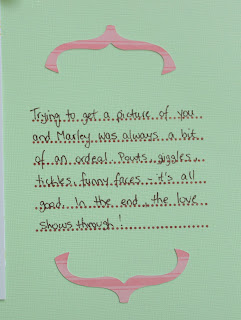 Trying to get a picture of you
and Marley was always a bit
of an ordeal. Pouts, giggles,
tickles, funny faces - it's all
good. In the end, the love
shows through!